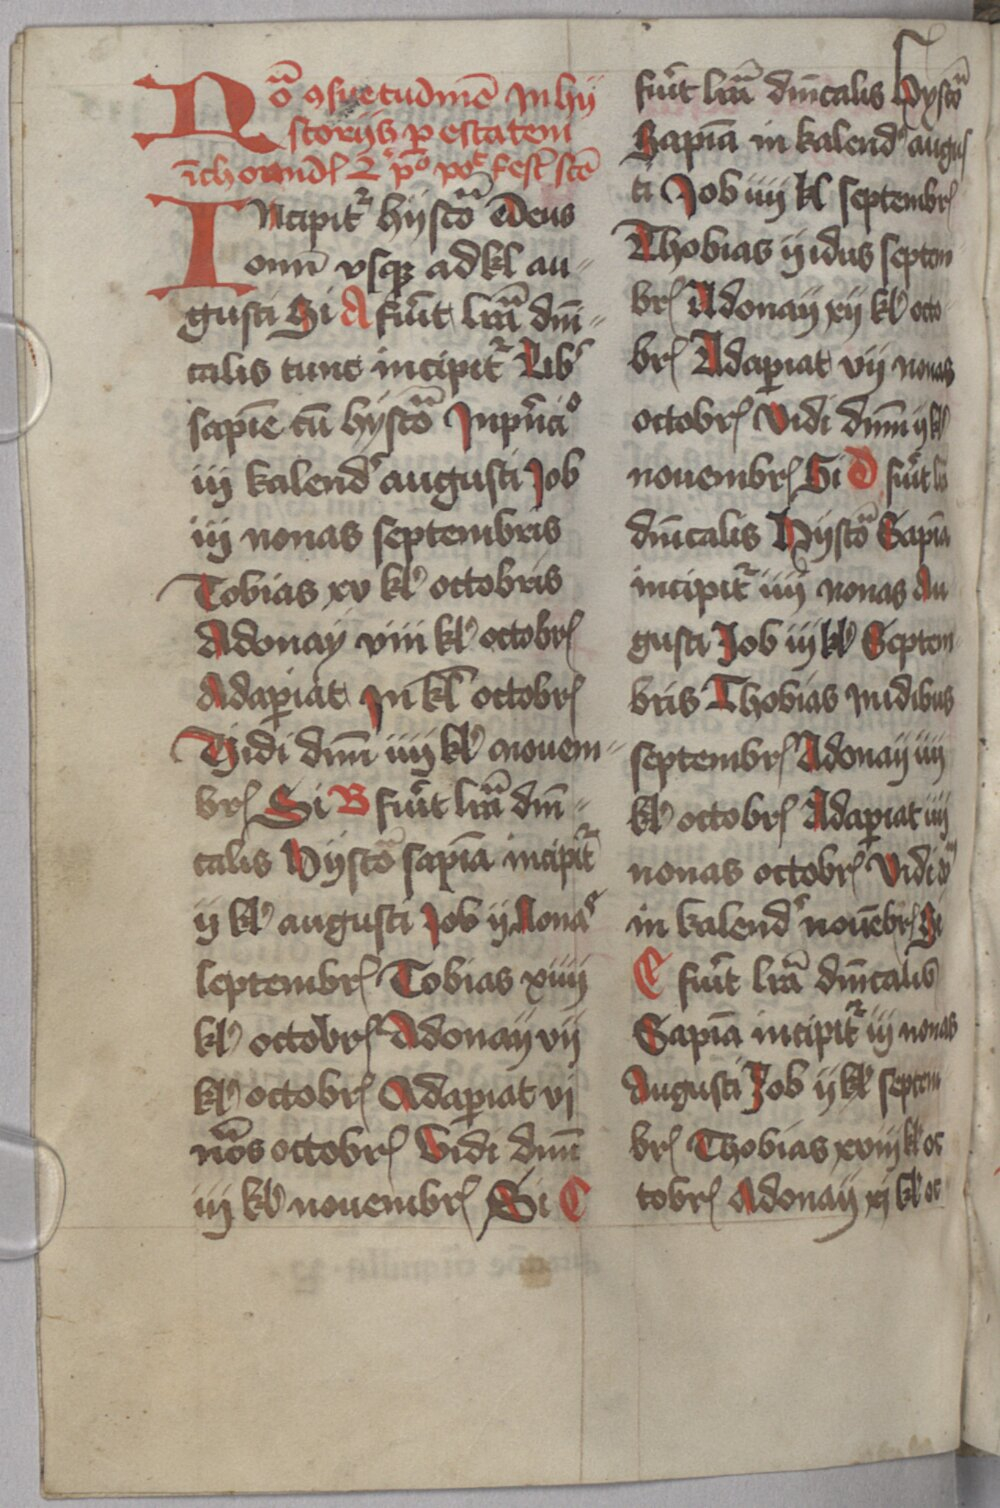 Nōͣ ꝯsuetudinē in hy
storijs ꝑ estatem
īchoandꝭ Et pͦ poᵗ festꝭ scē
INcipitᷣ hystoͣ Deus
oīm vsqꝫ ad kl au⸗
gusti Si A fuīt lrāͣ dm̄i⸗
calis tunc incipitᷣ Lib'
sapīe cū hystoͣ Inpn̄ciͦ
iij kalendᷣ augusti Job
iij nonas septembris
Tobias xv kl' octobris
Adonay viij kl' octobrꝭ
Adaꝑiat In kl octobrꝭ
Vidi dnm̄ iiij kl' nouem⸗
brꝭ Si B fuīt lrāͣ dm̄⸗
calis Hystoͣ sapīa incipitᷣ
ij kl' augusti Job ij Nonaˢ
septembrꝭ Tobias xiiij
kl' octobrꝭ Adonaij vij
kl' octobrꝭ Adaꝑiat vj
nōs octobrꝭ Vidi dnm̄
iij kl' nouembrꝭ Si C
fuīt lrāͣ dn̄icalis Hystoͣ
Sapīa in kalendᷣ augus
ti Job iiij kl septembrꝭ
Thobias ij idus septem
brꝭ Adonaij xij kl' octo
brꝭ Adaꝑiat vij nonas
octobrꝭ Vidi dnm̄ ij kl'
nouembrꝭ Si D fuīt lrā
dn̄icalis Hystoͣ Sapīa
incipitᷣ iiij nonas Au
gusti Job iij kl' Septem
bris Thobias In idibus
septembrꝭ Adonaij iiij
kl' octobrꝭ Adaꝑiat iiij
nonas octobrꝭ Vidi d
in kalendᷣ nouēbrꝭ Si
E fuīt lrā dn̄icalis
Sapīa incipitᷣ iij nonas
Augusti Job ij kl' septem
brꝭ Thobias xviij kl' oc
tobrꝭ Adonaij xj kl' oc